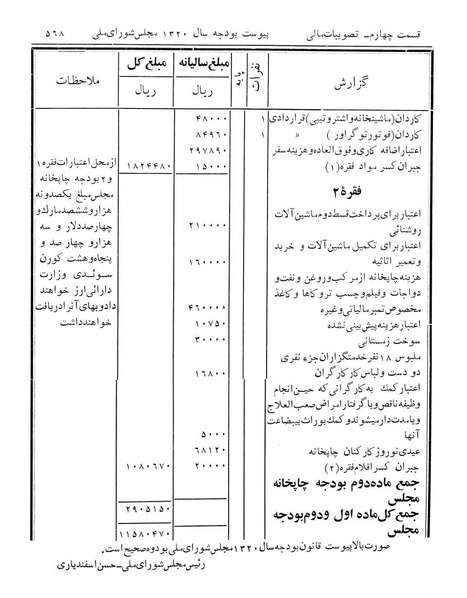 قسمت چهارم ـ تصویبات مالی پیوست بودجه سال ۱۳۲۰ مجلس شورای ملی ۵۶۸
گزارش نفرات پایه مبلغ سالیانه ریال مبلغ کل ریال ملاحظات
کاردان (ماشینخانه و اشتروتیپی) قراردادی ۱ ۴۸۰۰۰
کاردان (فوتوزنگراور) » ۱ ۸۴۹۶۰
اعتبار اضافه کاری و فوق العاده و هزینه سفر ۲۹۷۸۹۰
جبران کسر مواد فقره (۱) ۱۵۰۰۰ ۱۸۲۴۴۸۰
فقرهٔ ۲
اعتبار برای پرداخت قسط دوم ماشین آلات
روشنائی ۲۱۰۰۰۰
اعتبار برای تکمیل ماشین آلات و خرید
و تعمیر اثاثیه ۱۶۰۰۰۰
هزینه چاپخانه از مرکب و روغن و نفت و
دواجات و فیلم و چسب تروکاها و کاغذ
مخصوص تمبر مالیاتی و غیره ۴۶۰۰۰۰
اعتبار هزینه پیش بینی نشده ۱۰۷۵۰
سوخت زمستانی ۳۰۰۰۰
ملبوس ۱۸ نفر خدمتگزاران جزء نفری
دو دست و لباس کار کارگران ۱۶۸۰۰
اعتبار کمک به کارگرانی که حین انجام
وظیفه ناقص و یا گرفتار امراض صعب العلاج
و یا مدت دار میشوند و کمک بوراث بیبضاعت
آنها ۵۰۰۰
عیدی نوروز کارکنان چاپخانه ۶۸۱۲۰
جبران کسر اقلام فقره (۲) ۲۰۰۰۰ ۱۰۸۰۶۷۰
جمع ماده دوم بودجه چاپخانه
مجلس ۲۹۰۵۱۵۰
جمع کل ماده اول و دوم بودجه
مجلس ۱۱۵۸۰۴۷۰
از محل اعتبارات فقره ۱
و ۲ بودجه چاپخانه
مجلس مبلغ یکصد و نه
هزار و ششصد مارک و
چهارصد دلار و سه
هزار و چهار صد و
پنجاه و هشت کورن
سوئدی وزارت
دارائی ارز خواهند
داد و بهای آنرا دریافت
خواهند داشت
صورت بالا پیوست قانون بودجه سال ۱۳۲۰ مجلس شورای ملی بوده و صحیح است.
رئیس مجلس شورای ملی ـ حسن اسفندیاری